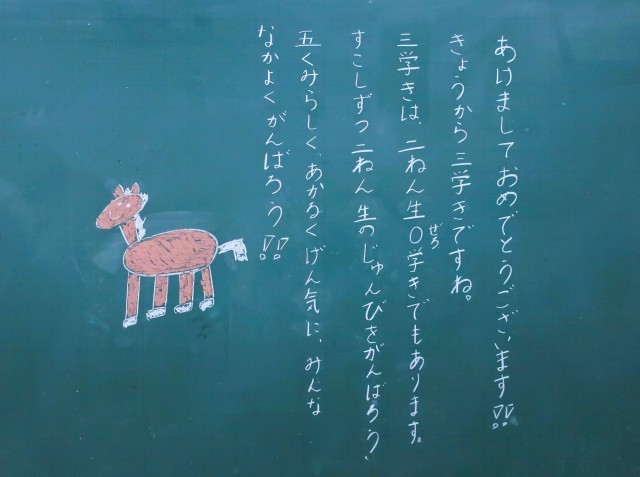 あけましておめでとうございます!!
きょうから三学きですね。
三学きは、二ねん生〇学きでもあります。
ぜろ
すこしずつ二ねん生のじゅんびをがんばろう、
五くみらしく、あかるくげん気に、みんな
なかよくがんばろう!!